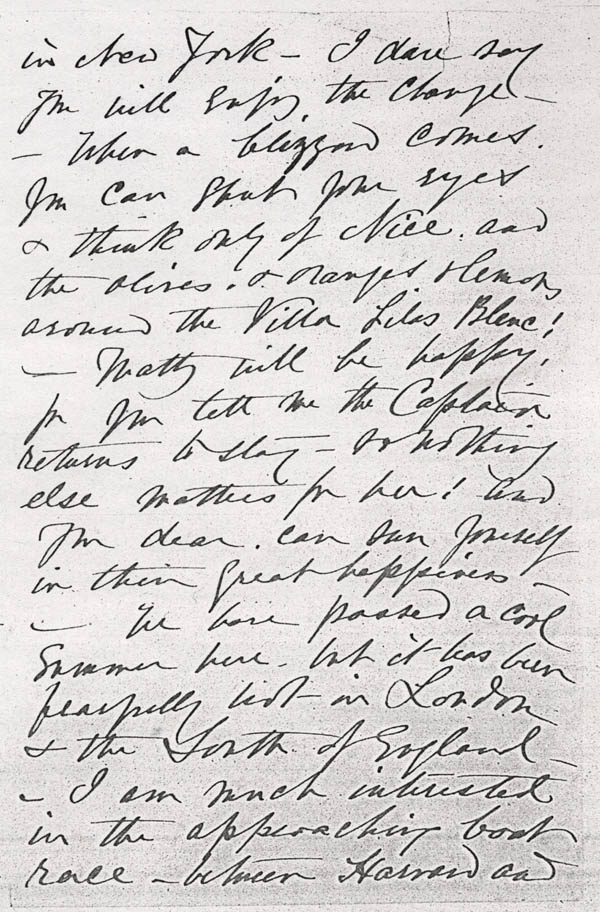 in New York - I dare say
you will enjoy the change -
- When a blizzard comes.
you can shut your eyes
& think only of Nice. and
the olives. & oranges & lemons
around the Villa Lilas Blanc!
- Matty will be happy,
for you tell me the Captain
returns to stay - so nothing
else matters for her! and
you dear. can sun yourself
in their great happiness -
- We have passed a cool
Summer here - but it has been
fearfully hot in London
& the South of England -
- I am much interested
in the approaching boat
race - between Harvard and